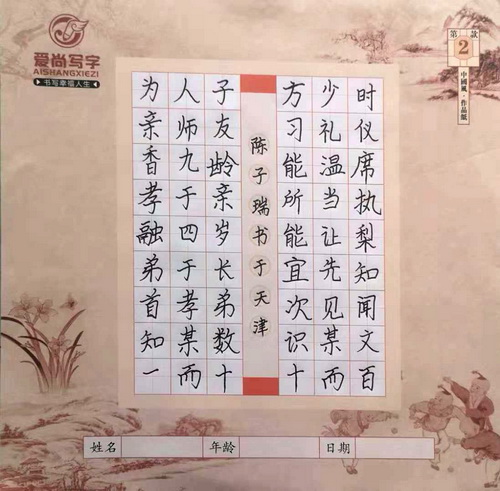 爱尚写字
AISHANGXIEZI
书写幸福人生
第2款
中國風·作品紙
为人子方少时
亲师友习礼仪
香九龄能温席
孝于亲所当执
融四岁能让梨
弟于长宜先知
首孝弟次见闻
知某数识某文
一而十十而百
陈子瑞书于天津
姓名 年龄 日期